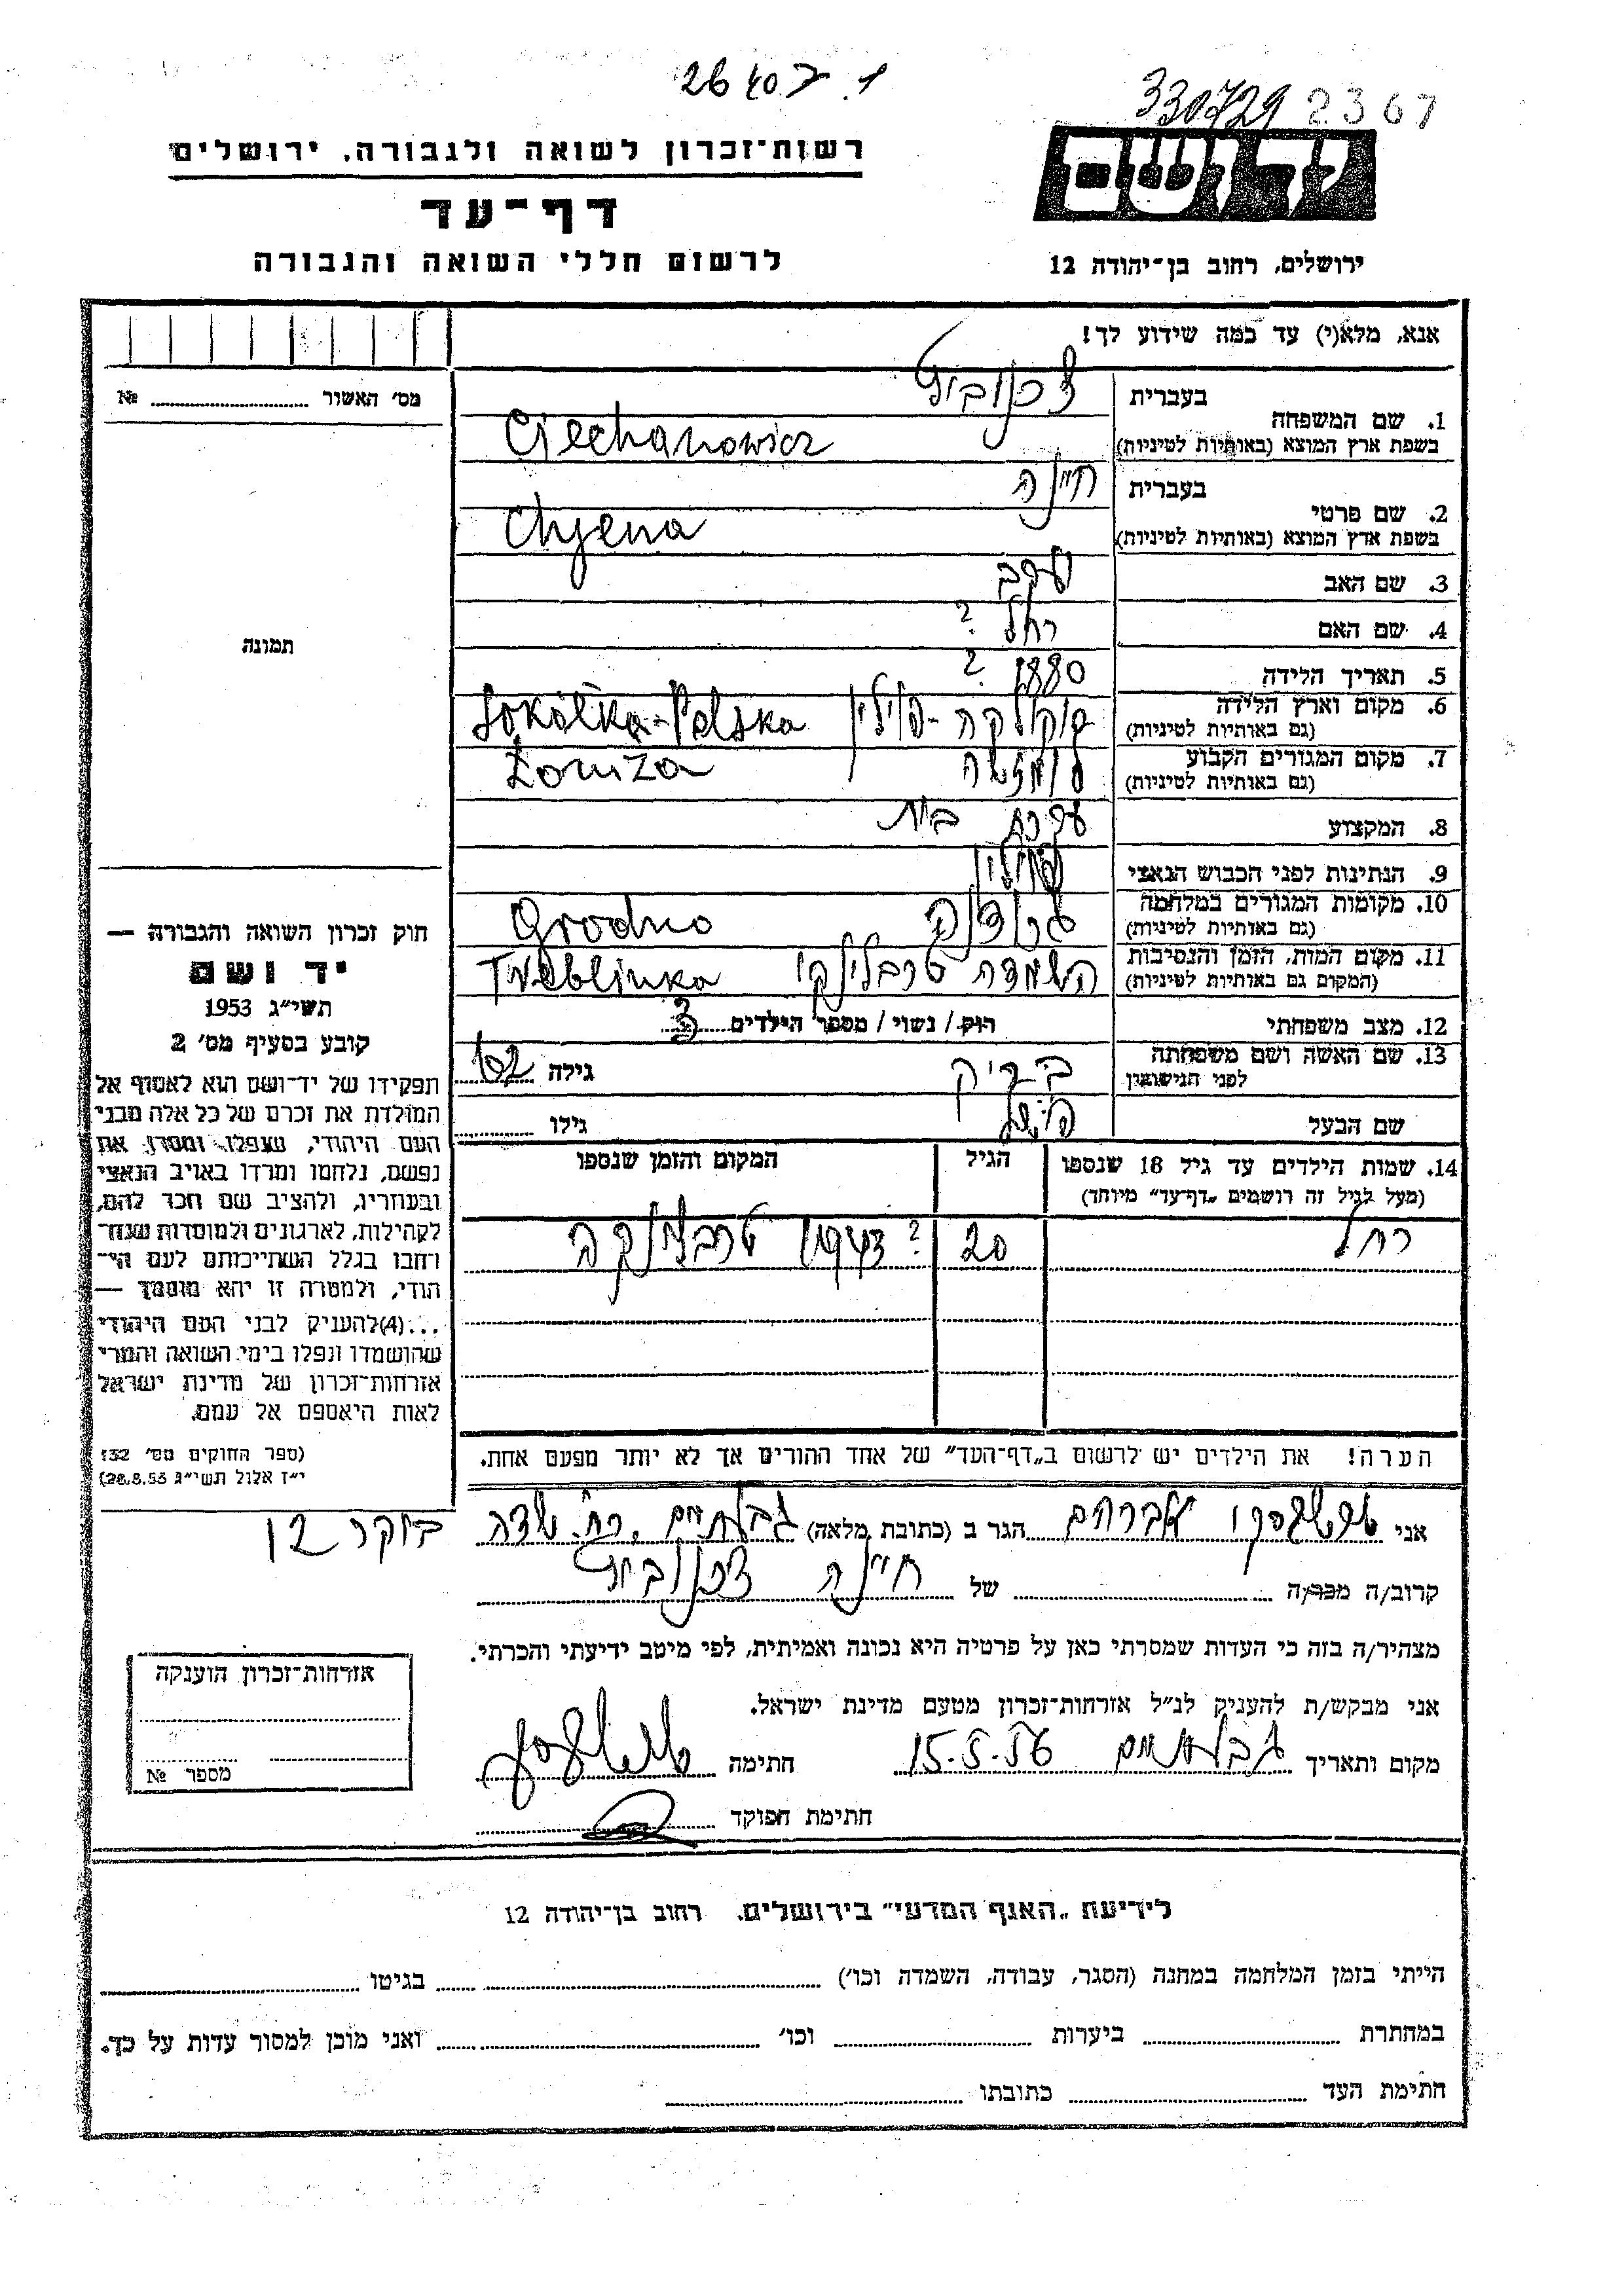 26407 .1
330729 2367
רשות־זכרון לשואה ולגבורה, ירושלים
ידושם
דף־עד
לרשום חללי השואה והגבורה
ירושלים, רחוב בן־יהודה 12
אנא, מלא(י) עד כמה שידוע לך!
מס׳ האשור № 
1. שם המשפחה
בעברית
בשפת ארץ המוצא (באותיות לטיניות)
Ciechanowicz
2. שם פרטי
בעברית חיינה
בשפת ארץ המוצא (באותיות לטיניות)
Chjena
3. שם האב יעקב
4. שם האם רחל ?
5. תאריך הלידה 1880 ?
6. מקום וארץ הלידה סוקולקה - פולין Sokółka - Polska
(גם באותיות לטיניות)
7. מקום המגורים הקבוע לומזה Łomża
(גם באותיות לטיניות)
8. המקצוע עקרת בית
9. הנתינות לפני הכבוש הנאצי פולין
10. מקומות המגורים במלחמה גרודנה Grodno
(גם באותיות לטיניות)
11. מקום המות, הזמן והנסיבות השמדה טרבלינקי Treblinka
(המקום גם באותיות לטיניות)
12. מצב משפחתי רוק / נשוי / מספר הילדים 3
13. שם האשה ושם משפחתה
לפני הנישואין
גילה 62
שם הבעל
גילו
14. שמות הילדים עד גיל 18 שנספו
(מעל לגיל זה רושמים „דף־עד״ מיוחד)
הגיל
המקום והזמן שנספו
רחל 20 ? 1943 טרבלינקה
הערה! את הילדים יש לרשום ב„דף־העד״ של אחד ההורים אך לא יותר מפעם אחת.
תמונה
חוק זכרון השואה והגבורה —
יד ושם
תשי״ג 1953
קובע בסעיף מס׳ 2
תפקידו של יד־ושם הוא לאסוף אל
המולדת את זכרם של כל אלה מבני
העם היהודי, שנפלו ומסרו את
נפשם, נלחמו ומרדו באויב הנאצי
ובעוזריו, ולהציב שם וזכר להם,
לקהילות, לארגונים ולמוסדות שנח־
רחבו בגלל השתייכותם לעם הי־
הודי, ולמטרה זו יהא מוסמך —
...(4)להעניק לבני העם היהודי
שהושמדו ונפלו בימי השואה והמרי
אזרחות־זכרון של מדינת ישראל
לאות היאספם אל עמם.
(ספר החוקים מס׳ 132
י״ז אלול תשי״ג 28.8.53)
אני אברהם הגר ב (כתובת מלאה) גבעתיים, רח׳ שדה בוקר 12
קרוב/ה מכר/ה של חיינה
מצהיר/ה בזה כי העדות שמסרתי כאן על פרטיה היא נכונה ואמיתית, לפי מיטב ידיעתי והכרתי.
אני מבקש/ת להעניק לנ״ל אזרחות־זכרון מטעם מדינת ישראל.
מקום ותאריך גבעתיים 15.5.56 חתימה
חתימת הפוקד
אזרחות־זכרון הוענקה
מספר №
לידיעת „האגף המדעי״ בירושלים, רחוב בן־יהודה 12
הייתי בזמן המלחמה במחנה (הסגר, עבודה, השמדה וכו׳) בגיטו
במחתרת ביערות וכו׳ ואני מוכן למסור עדות על כך.
חתימת העד כתובתו